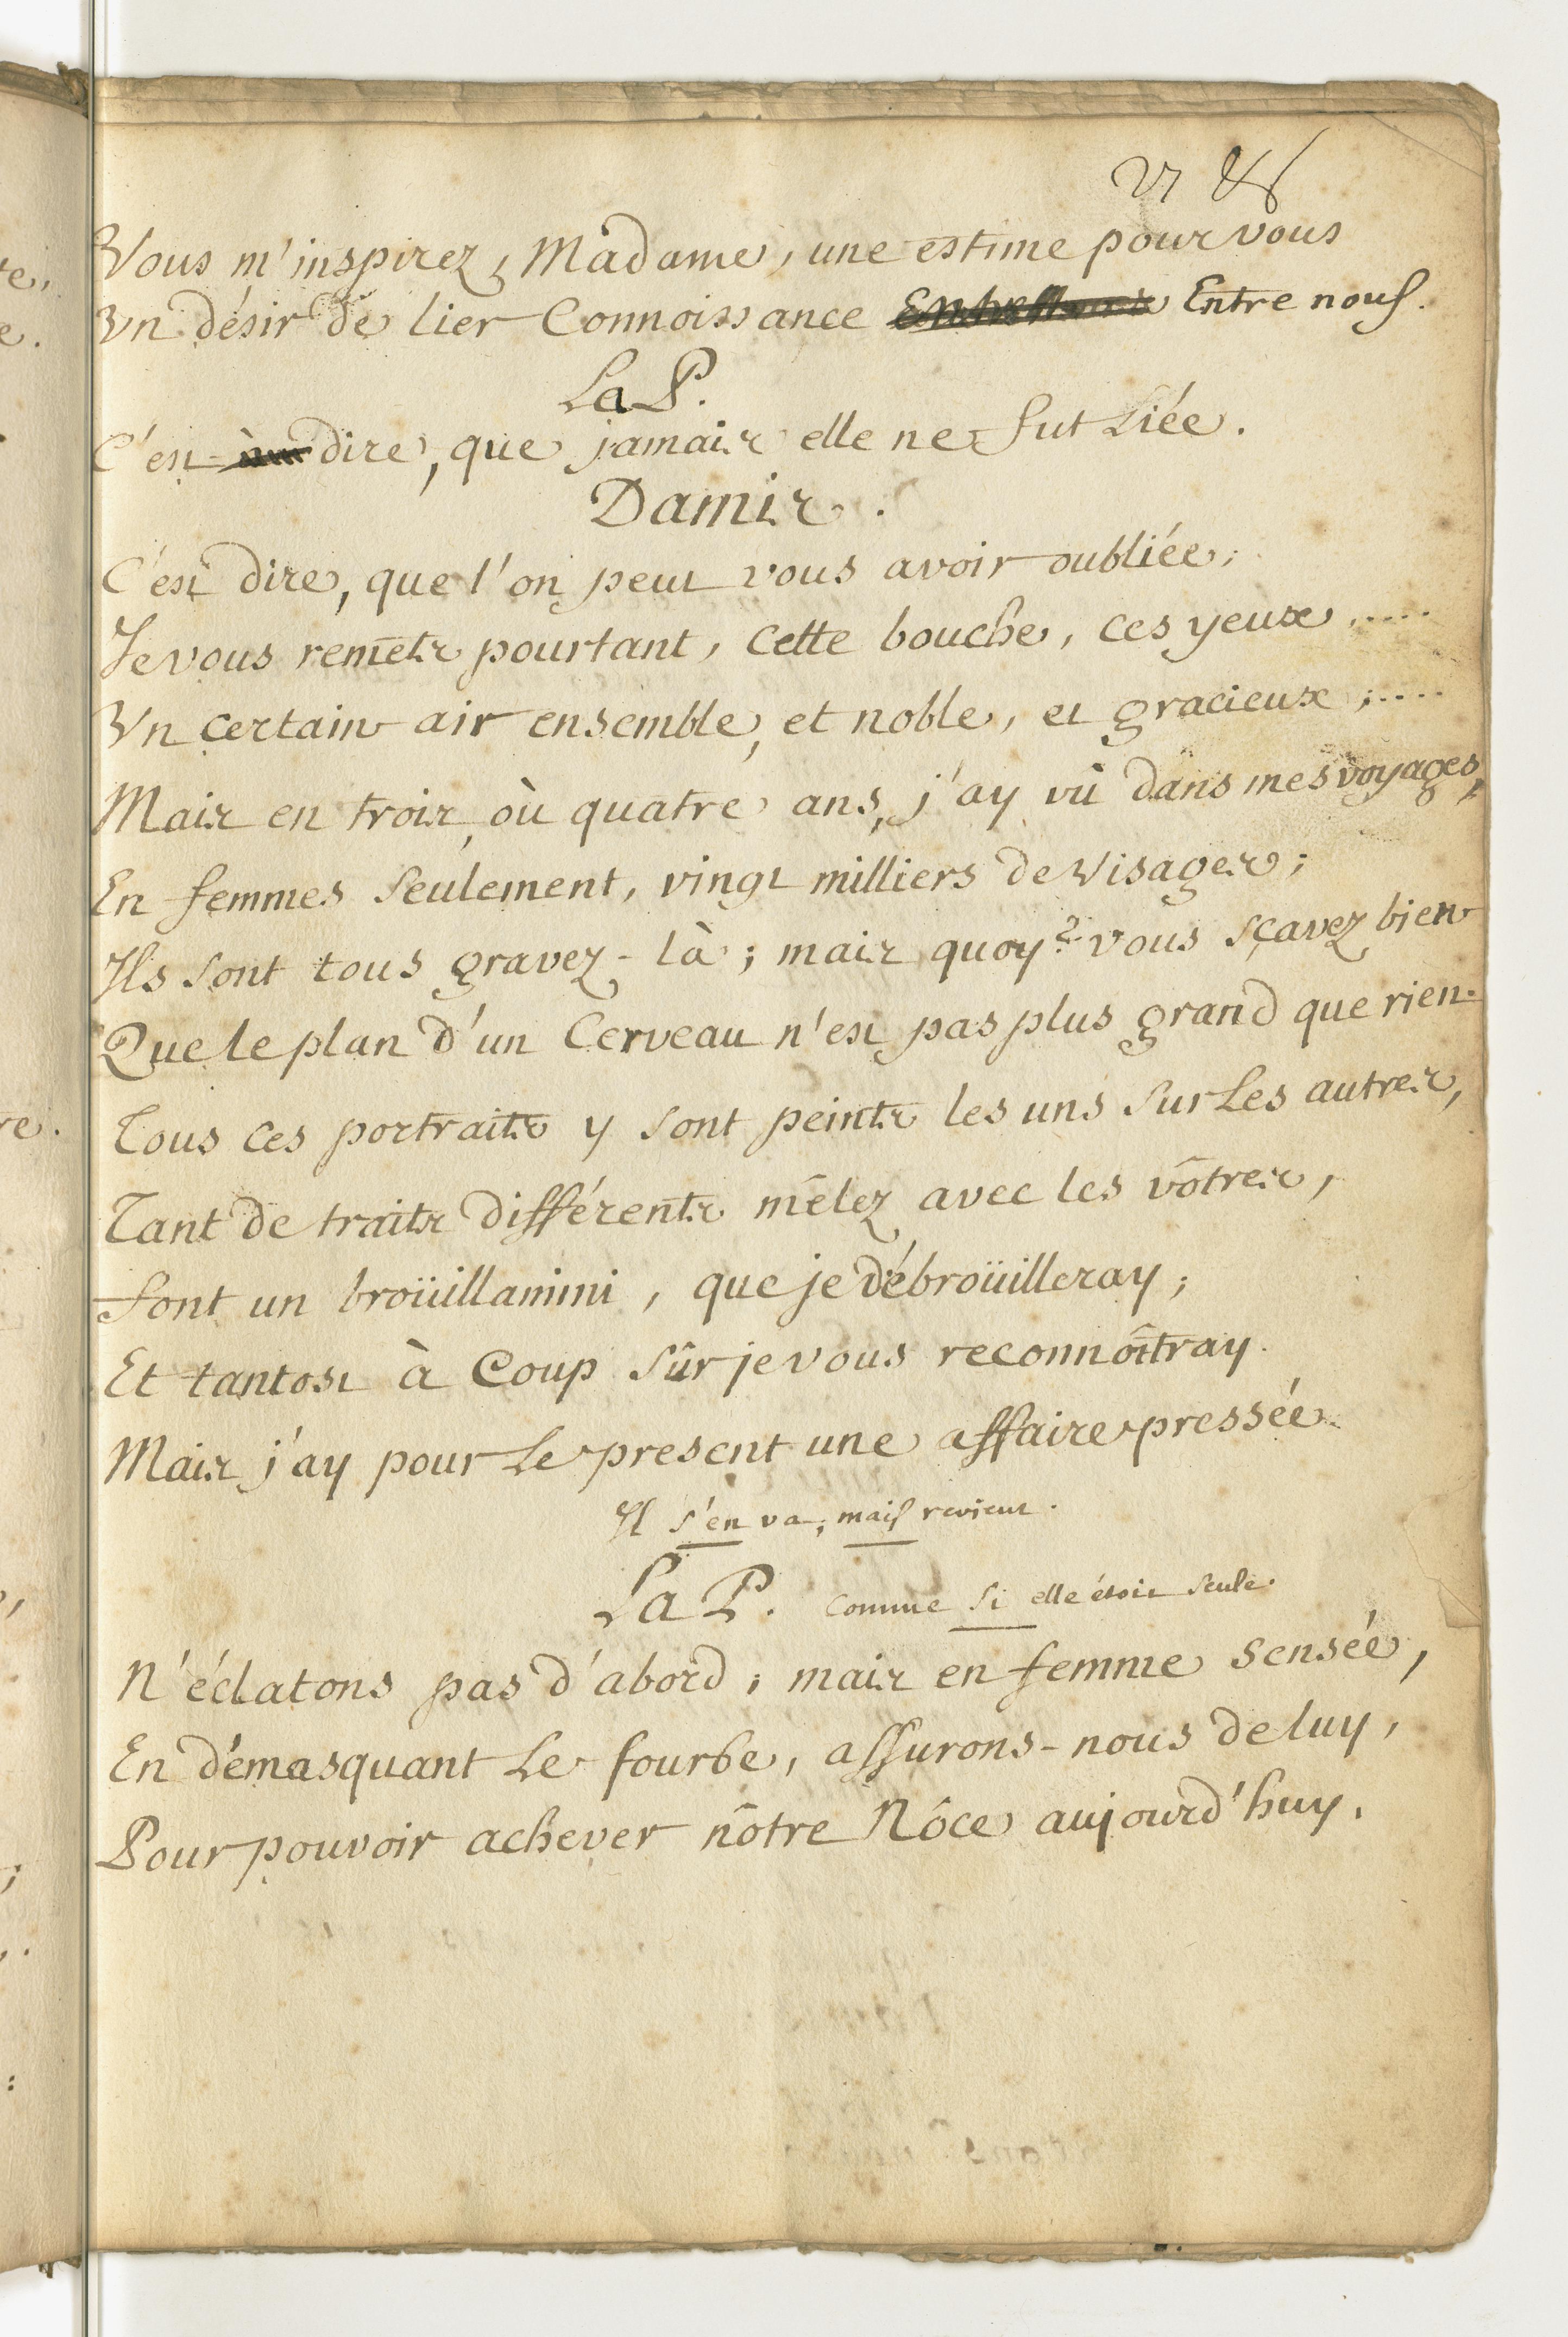 Vous m'inspirez, Madame, une estime pour vous
Un désir de lier Connoissance Entre nous.
La P.
C'est dire, que jamais elle ne fut Liée.
Damis.
C'est dire, que l'on peut vous avoir oubliée;
Je vous remets pourtant, cette bouche, ces yeux,....
Un certain air ensemble, et noble, et gracieux;....
Mais en trois, où quatre ans, j'ay vû dans mes voyages,
En femmes seulement, vingt milliers de visages;
Ils sont tous gravez-là; mais quoy? vous sçavez bien
Que le plan d'un Cerveau n'est pas plus grand que rien.
Tous ces portraits y sont peints les uns sur Les autres,
Tant de traits différents mêlez avec les vôtres,
font un broüillamini, que je débroüilleray;
Et tantost à Coup sûr je vous reconnoîtray.
Mais j'ay pour Le present une affaire pressée.
Il s'en va, mais revient.
La P. comme si elle étoit seule.
N'éclatons pas d'abord; mais en femme sensée,
En démasquant Le fourbe, assurons-nous de luy,
Pour pouvoir achever nôtre Nôce aujourd'huy.